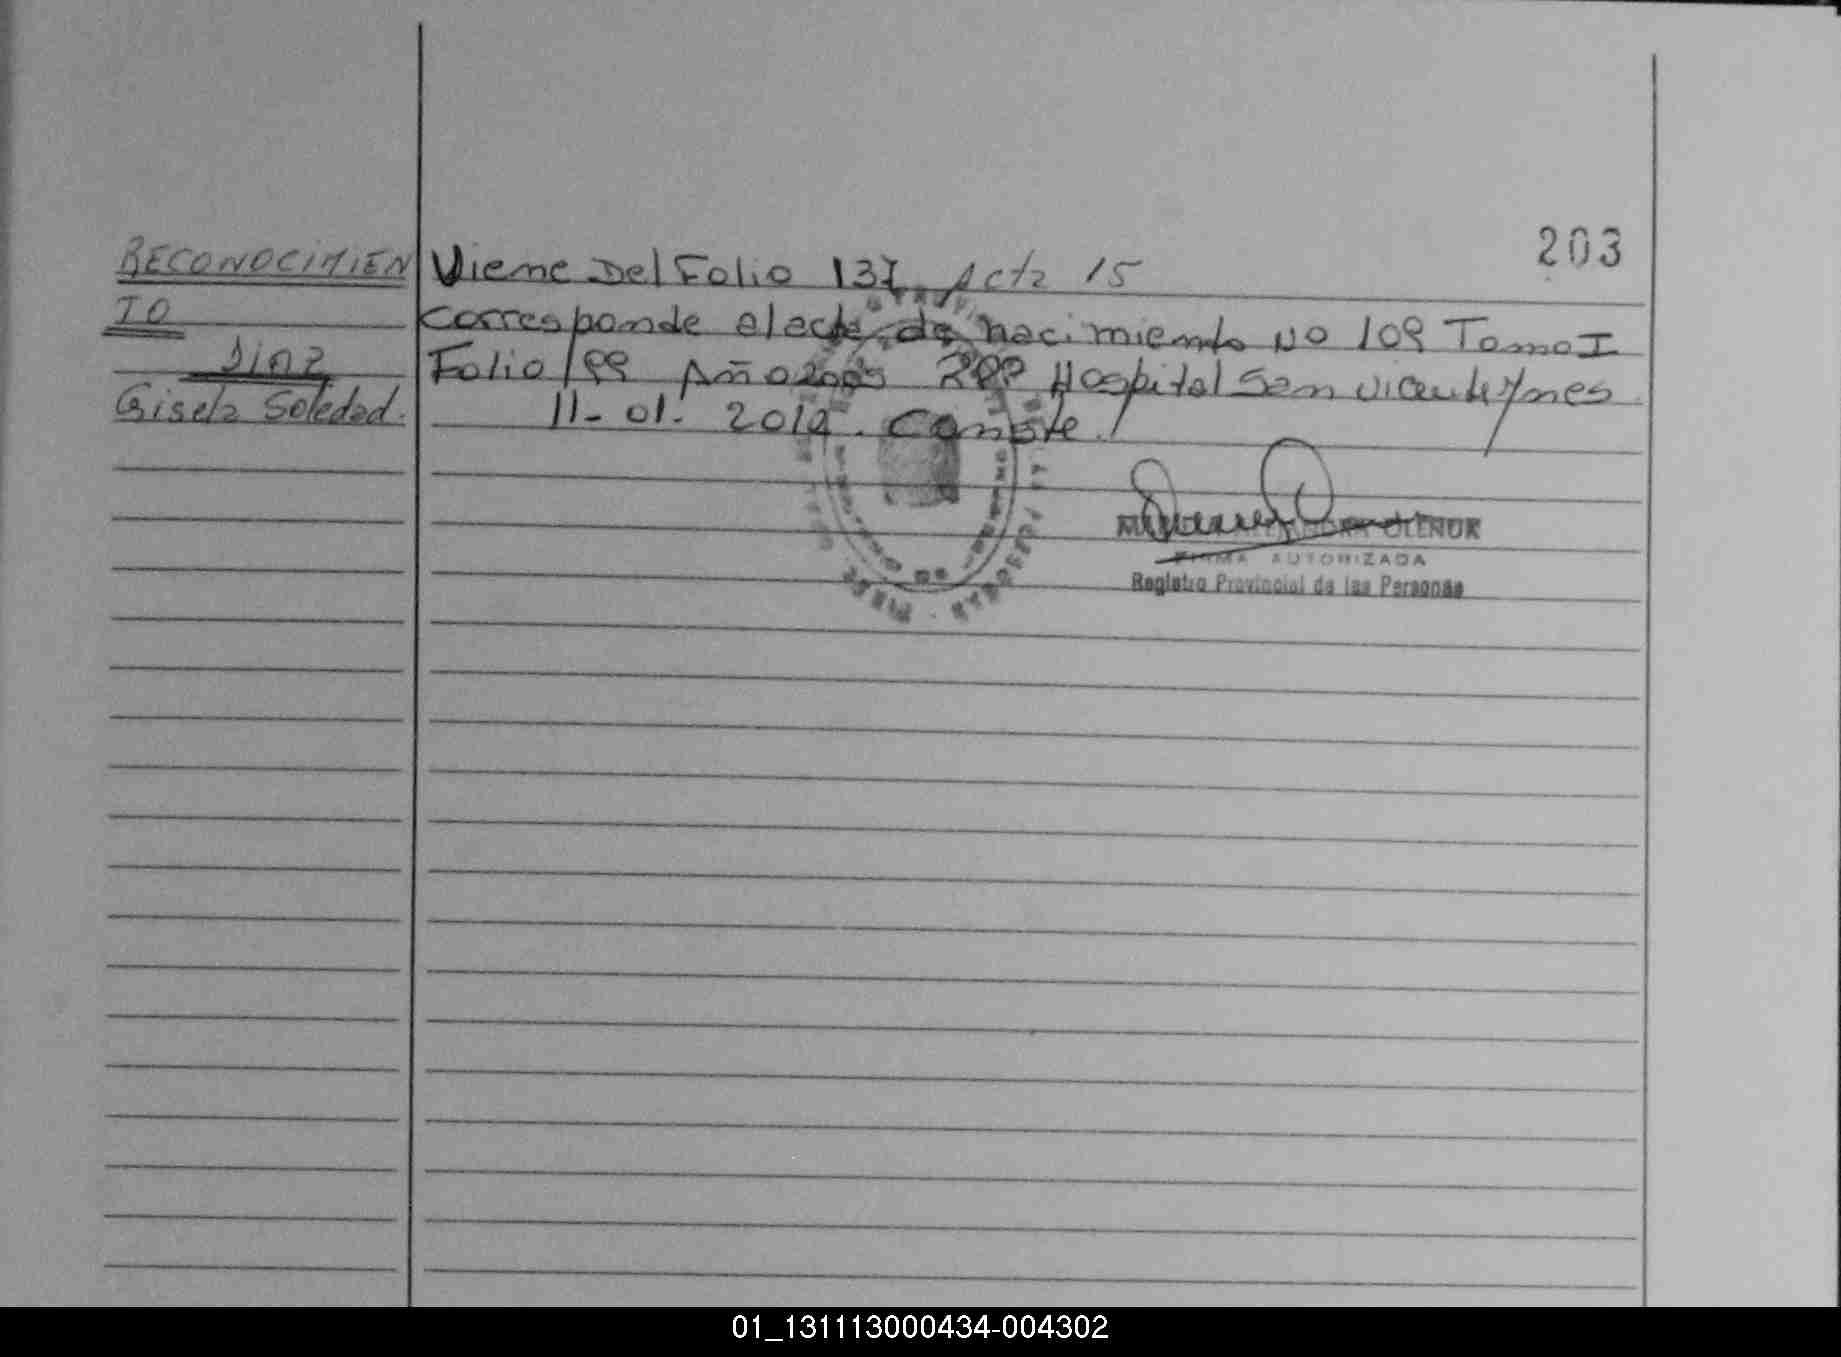 203
RECONOCIMIEN
TO
DIAZ
Gisela Soledad.
Viene Del Folio 137 Acta 15
corresponde el acta de nacimiento No 109 Tomo I
Folio 199 Año 2009 Hospital San Vicente
11-01-2010. Conste.
OLENUK
FIRMA AUTORIZADA
Registro Provincial de las Personas
01_131113000434-004302